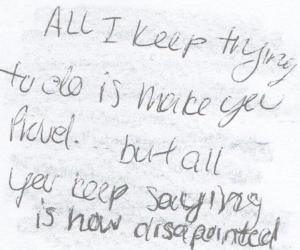 ALL I keep trying
to do is make you
Proud. but all
you keep saying
is how disapointed